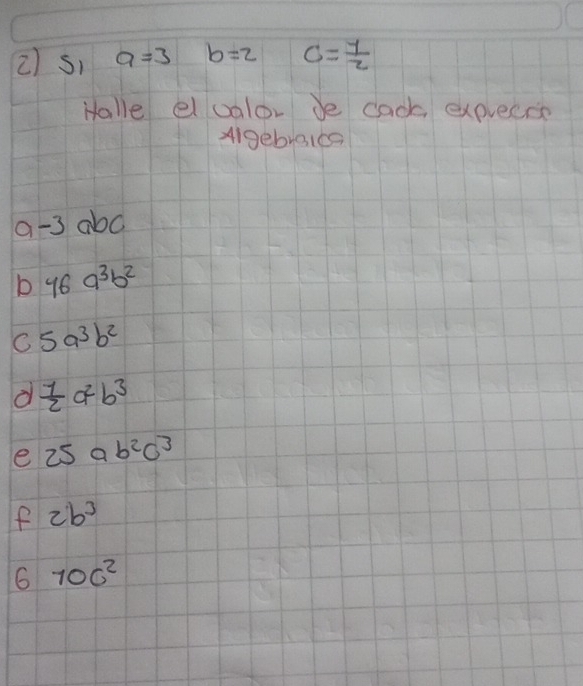 2) Si a=3 b=2 c=1/2
Halle el valor de cada expreción
Algebraica
a -3 abc
b 16 a³b²
c 5a³b²
d 1/2 a²b³
e 25 ab²c³
f 2b³
G 10c²